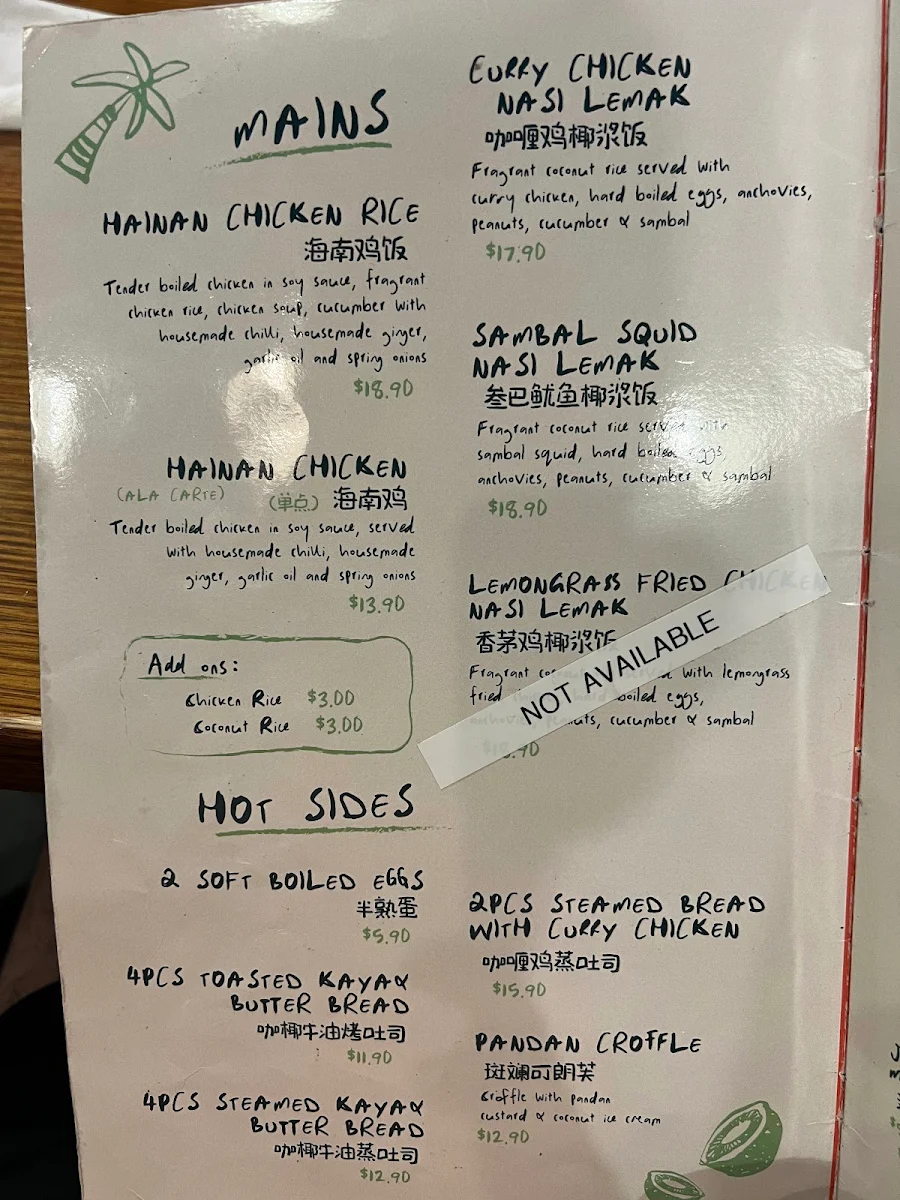 MAINS
HAINAN CHICKEN RICE
海南鸡饭
Tender boiled chicken in soy sauce, fragrant
chicken rice, chicken soup, cucumber with
housemade chilli, housemade ginger,
garlic oil and spring onions
$18.90
HAINAN CHICKEN
(ALA CARTE) (单点) 海南鸡
Tender boiled chicken in soy sauce, served
with housemade chilli, housemade
ginger, garlic oil and spring onions
$13.90
Add ons:
Chicken Rice $3.00
Coconut Rice $3.00
HOT SIDES
2 SOFT BOILED EGGS
半熟蛋
$5.90
4PCS TOASTED KAYA &
BUTTER BREAD
咖椰牛油烤吐司
$11.90
4PCS STEAMED KAYA &
BUTTER BREAD
咖椰牛油蒸吐司
$12.90
CURRY CHICKEN
NASI LEMAK
咖喱鸡椰浆饭
Fragrant coconut rice served with
curry chicken, hard boiled eggs, anchovies,
peanuts, cucumber & sambal
$17.90
SAMBAL SQUID
NASI LEMAK
叁巴鱿鱼椰浆饭
Fragrant coconut rice served with
sambal squid, hard boiled eggs
anchovies, peanuts, cucumber & sambal
$18.90
LEMONGRASS FRIED CHICKEN
NASI LEMAK
香茅鸡椰浆饭
Fragrant with lemongrass
fried boiled eggs,
cucumber & sambal
NOT AVAILABLE
2PCS STEAMED BREAD
WITH CURRY CHICKEN
咖喱鸡蒸吐司
$15.90
PANDAN CROFFLE
斑斓可朗芙
Croffle with pandan
custard & coconut ice cream
$12.90